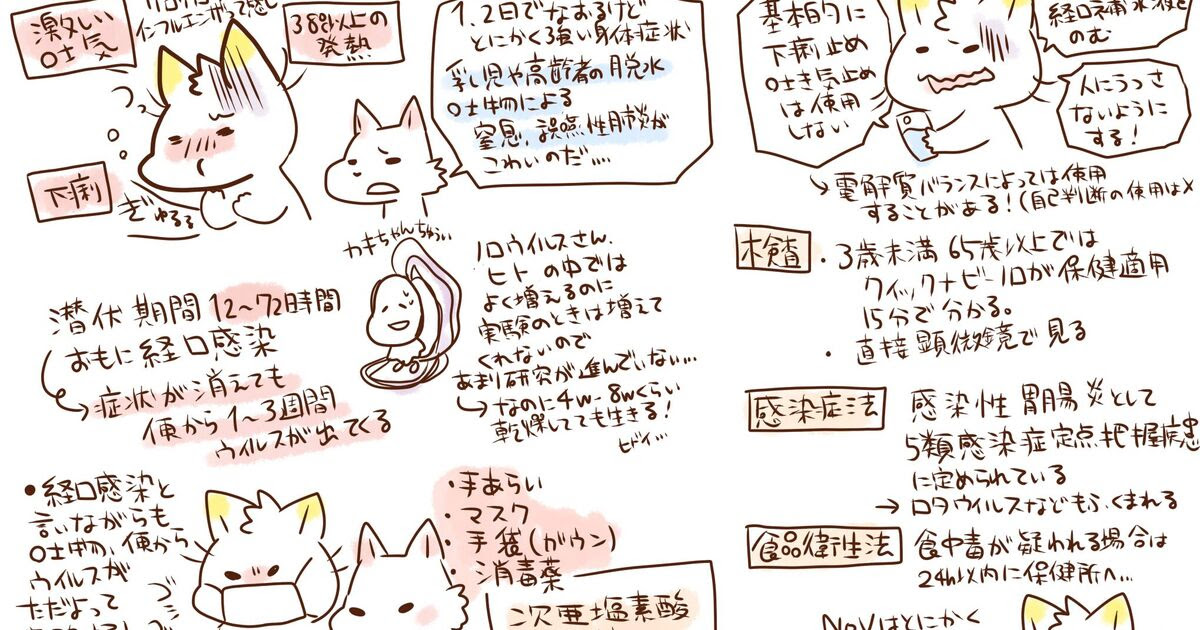 インフルエンザって感じ
激しい
吐気
38℃以上の
発熱
下痢
ぎゅるる
1、2日でなおるけど
とにかく強い身体症状
乳児や高齢者の脱水
吐物による
窒息、誤嚥性肺炎が
こわいのだ....
基本的に
下痢止め
吐き気止め
は使用
しない
経口補水液を
のむ
人にうつさ
ないように
する!
電解質バランスによっては使用
することがある!(自己判断の使用は×
検査
・3歳未満 65歳以上では
クイックナビーノロが保健適用
15分で分かる。
・直接顕微鏡で見る
潜伏期間 12〜72時間
おもに経口感染
症状が消えても
便から1〜3週間
ウイルスが出てくる
カキちゃんちゅうい
ノロウイルスさん、
ヒトの中では
よく増えるのに
実験のときは増えて
くれないので
あまり研究が進んでいない...
→なのに4w-8wくらい
乾燥してても生きる!
ヒドイ...
感染症法
感染性胃腸炎として
5類感染症定点把握疾患
に定められている
→ロタウイルスなどもふくまれる
食品衛生法
食中毒が疑われる場合は
24h以内に保健所へ...
●経口感染と
言いながらも、
吐物、便から、
ウイルスが
ただよって
・手あらい
・マスク
・手袋(ガウン)
・消毒薬
次亜塩素酸
NoVはとにかく